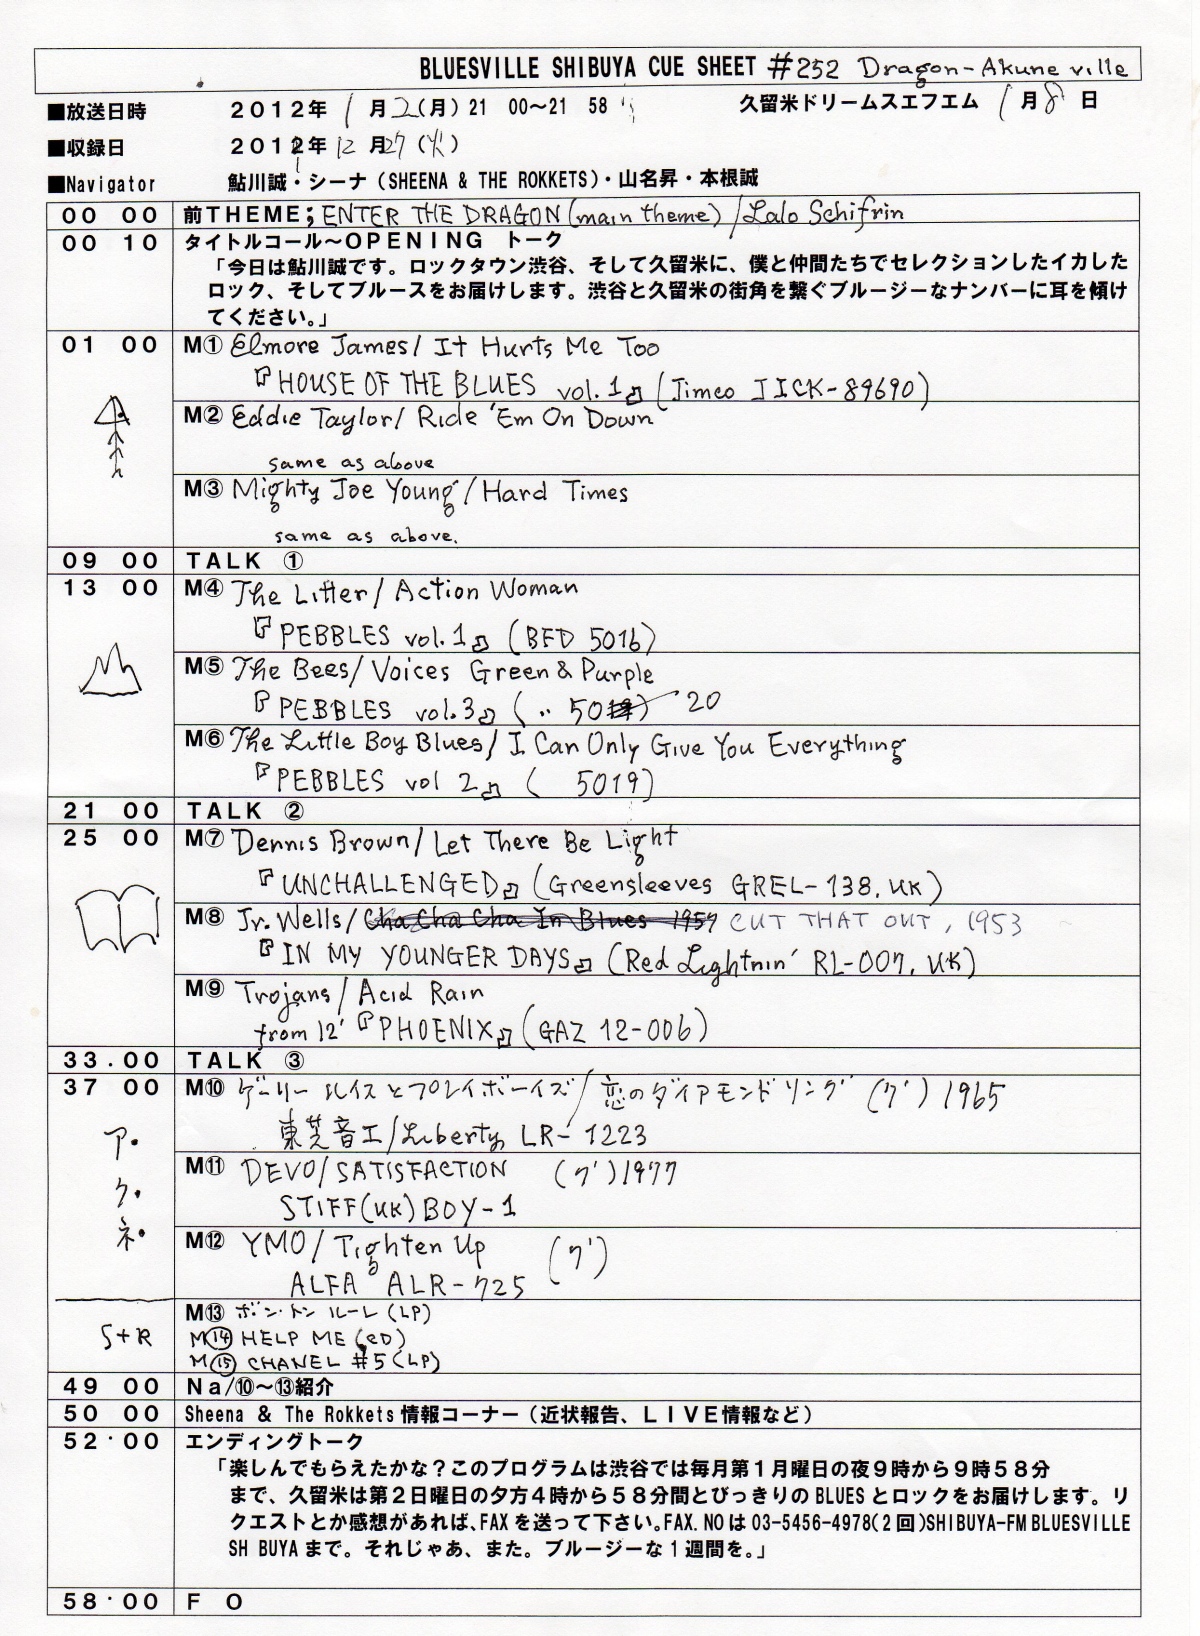 BLUESVILLE SHIBUYA CUE SHEET #252 Dragon-Akune ville
■放送日時 2012年 1月2(月)21 00～21 58 久留米ドリームスエフエム 1月8日
■収録日 2012年12月27(火)
1
■Navigator 鮎川誠・シーナ（SHEENA & THE ROKKETS）・山名昇・本根誠
00 00 前THEME; ENTER THE DRAGON (main theme) / Lalo Schifrin
00 10 タイトルコール～OPENING トーク
「今日は鮎川誠です。ロックタウン渋谷、そして久留米に、僕と仲間たちでセレクションしたイカした
ロック、そしてブルースをお届けします。渋谷と久留米の街角を繋ぐブルージーなナンバーに耳を傾け
てください。」
01 00 M① Elmore James/ It Hurts Me Too
『HOUSE OF THE BLUES vol.1』(Jimco JICK-89690)
M② Eddie Taylor/ Ride 'Em On Down
same as above
M③ Mighty Joe Young/Hard Times
same as above.
09 00 TALK ①
13 00 M④ The Litter/ Action Woman
『PEBBLES vol.1』(BFD 5016)
M⑤ The Bees/ Voices Green & Purple
『PEBBLES vol.3』( 〃 50 ) 20
M⑥ The Little Boy Blues/ I Can Only Give You Everything
『PEBBLES vol 2』( 5019)
21 00 TALK ②
25 00 M⑦ Dennis Brown/ Let There Be Light
『UNCHALLENGED』(Greensleeves GREL-138, UK)
M⑧ Jr. Wells/ Cha Cha Cha In Blues 1957 CUT THAT OUT, 1953
『IN MY YOUNGER DAYS』(Red Lightnin' RL-007, UK)
M⑨ Trojans/ Acid Rain
from 12' 『PHOENIX』(GAZ 12-006)
33.00 TALK ③
37 00 M⑩ ゲーリー ルイスとプレイボーイズ/ 恋のダイアモンドリング (7') 1965
東芝音工/Liberty LR-1223
ア・
ク・
ネ・
M⑪ DEVO/SATISFACTION (7')1977
STIFF(UK)BOY-1
M⑫ YMO/ Tighten Up (7')
ALFA ALR-725
S+R
M⑬ ボン・トン ルーレ(LP)
M⑭ HELP ME (CD)
M⑮ CHANEL #5(LP)
49 00 Na/⑩～⑬紹介
50 00 Sheena & The Rokkets情報コーナー（近状報告、LIVE情報など）
52 00 エンディングトーク
「楽しんでもらえたかな？このプログラムは渋谷では毎月第1月曜日の夜9時から9時58分
まで、久留米は第2日曜日の夕方4時から58分間とびっきりのBLUESとロックをお届けします。リ
クエストとか感想があれば、FAXを送って下さい。FAX.NOは03-5456-4978(2回)SHIBUYA-FM BLUESVILLE
SH BUYAまで。それじゃあ、また。ブルージーな1週間を。」
58 00 F O